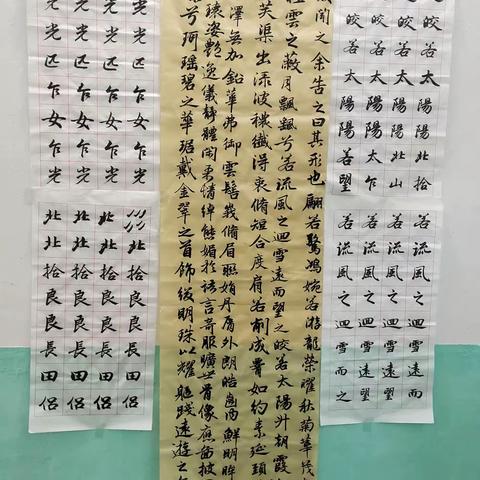 皎若太陽陽北拾
皎若太陽陽北山
皎若太陽陽太乍
皎若太陽陽若望
若流風之迴雪遠而
若流風之迴雪遠望
若流風之迴雪遠望
若流風之迴雪而之
聞之余告之曰其形也翩若驚鴻婉若游龍榮曜秋菊華茂
輕雲之蔽月飄飄兮若流風之迴雪遠而望之皎若太陽升朝霞
芙渠出淥波穠纖得衷脩短合度肩若削成腰如約素延頸
澤無加鉛華弗御雲髻峩脩眉聯娟丹脣外朗皓齒內鮮明眸
瓌姿艷逸儀靜體閑柔情綽態媚於語言奇服曠世骨像應圖披
兮珥瑤碧之華琚戴金翠之首飾綴明珠以耀軀踐遠遊之
光光匹乍女乍光
光光匹乍女乍光
光光匹乍女乍光
光光匹乍女乍光
北拾良良長田侶
北北拾良良長田侶
北北拾良良長田侶
北北拾良良長田侶